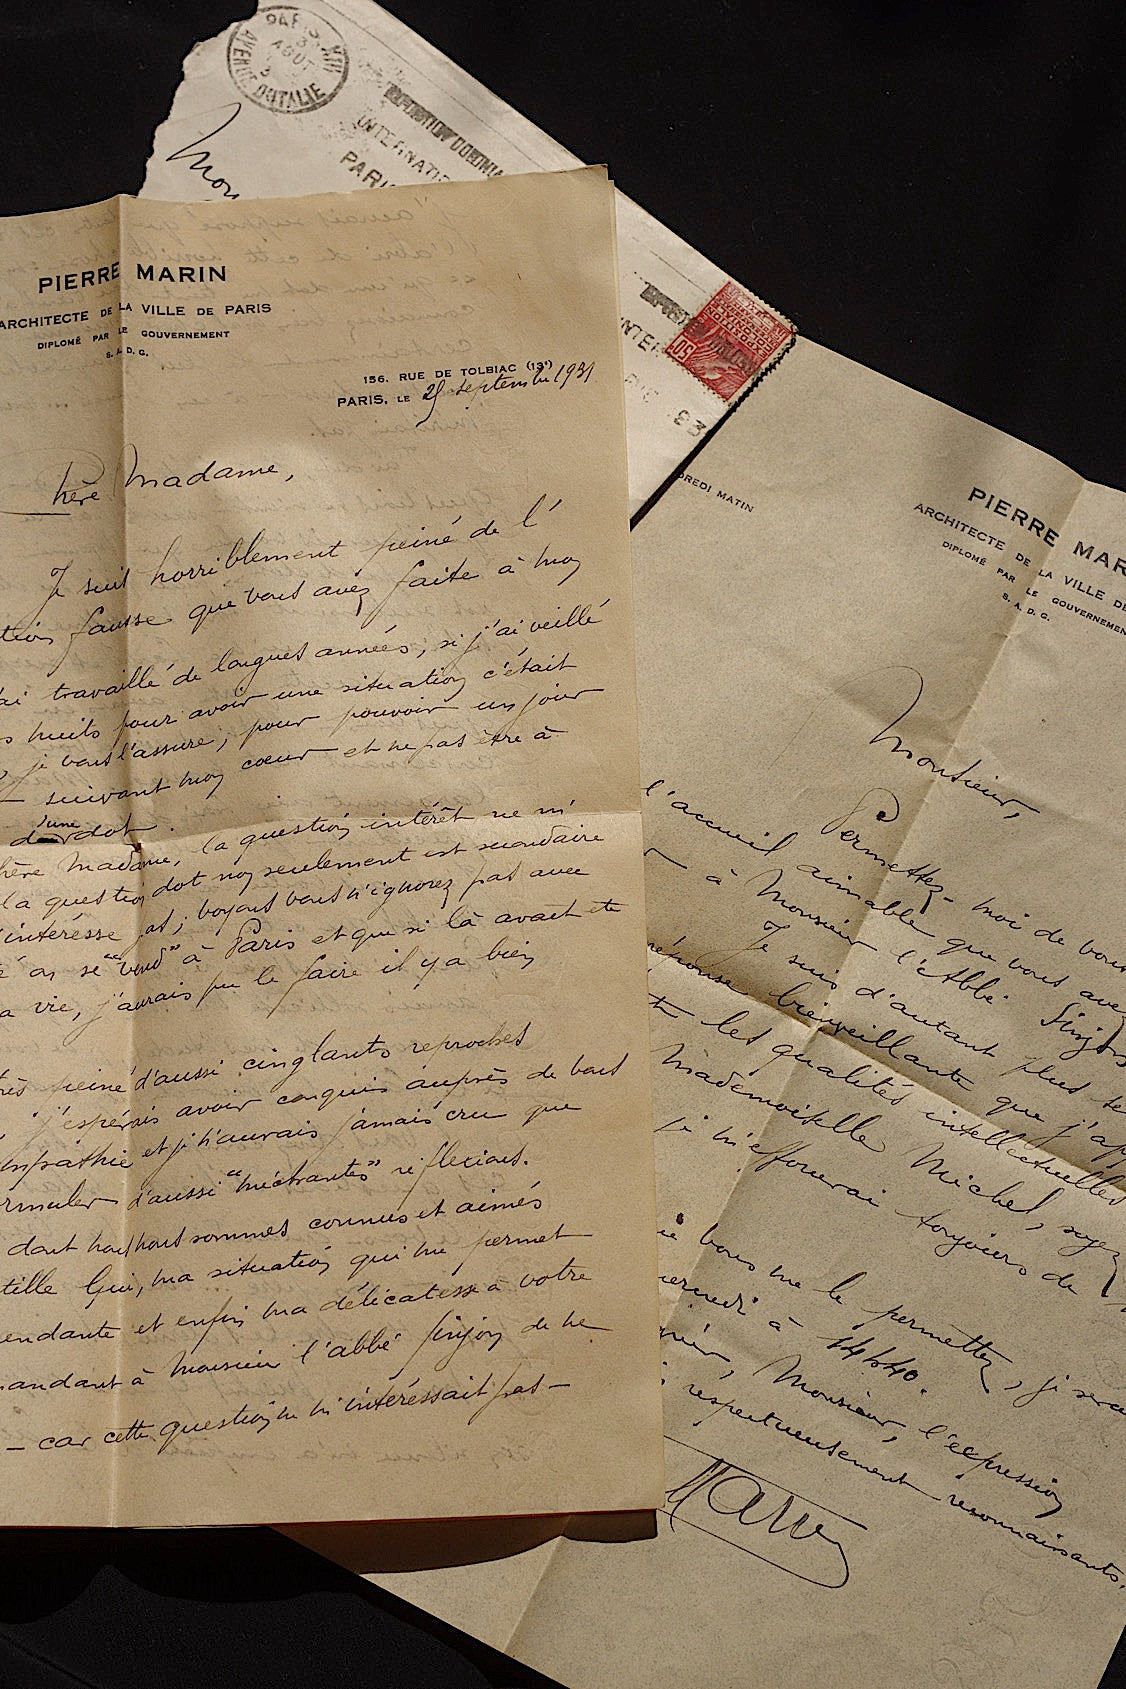 PARIS XIII
3
AOUT
AVENUE D'ITALIE
INTERNATIO
PARIS
INTER
50
PIERRE MARIN
ARCHITECTE DE LA VILLE DE PARIS
DIPLOMÉ PAR LE GOUVERNEMENT
S. A. D. G.
156, RUE DE TOLBIAC (13e)
PARIS, LE 25 septembre 1931
hère Madame,
Je suis horriblement peiné de l'
tion fausse que vous avez faite à mon
ai travaillé de longues années, si j'ai veillé
s nuits pour avoir une situation c'était
, je vous l'assure, pour pouvoir un jour
suivant mon cœur et ne pas être à
d'une dot.
hère Madame, la question intérêt ne m'
la question dot non seulement est secondaire
'intéresse pas; voyons vous n'ignorez pas avec
é on se "vend" à Paris et que si là avait été
a vie, j'aurais pu le faire il y a bien
rès peiné d'aussi cinglants reproches
, j'espérais avoir conquis auprès de vous
mpathie et je n'aurais jamais cru que
rmuler d'aussi "méchantes" réflexions.
dont nous sommes connus et aimés
tille Gui, ma situation qui me permet
endante et enfin ma délicatesse à votre
mandant à Monsieur l'abbé Sinjon de ne
— car cette question ne m'intéressait pas —
DREDI MATIN
PIERRE MAR
ARCHITECTE DE LA VILLE DE
DIPLOMÉ PAR LE GOUVERNEMEN
S. A. D. G.
Monsieur,
Permettez-moi de vous
l'accueil aimable que vous avez
à Monsieur l'Abbé Sinjon
Je suis d'autant plus
réponse bienveillante que j'ap
les qualités intellectuelles
Mademoiselle Michel, soyez
je m'efforcerai toujours de
vous me le permettez, je serai
à 14h40.
, Monsieur, l'expression
respectueusement reconnaissants.
Marin